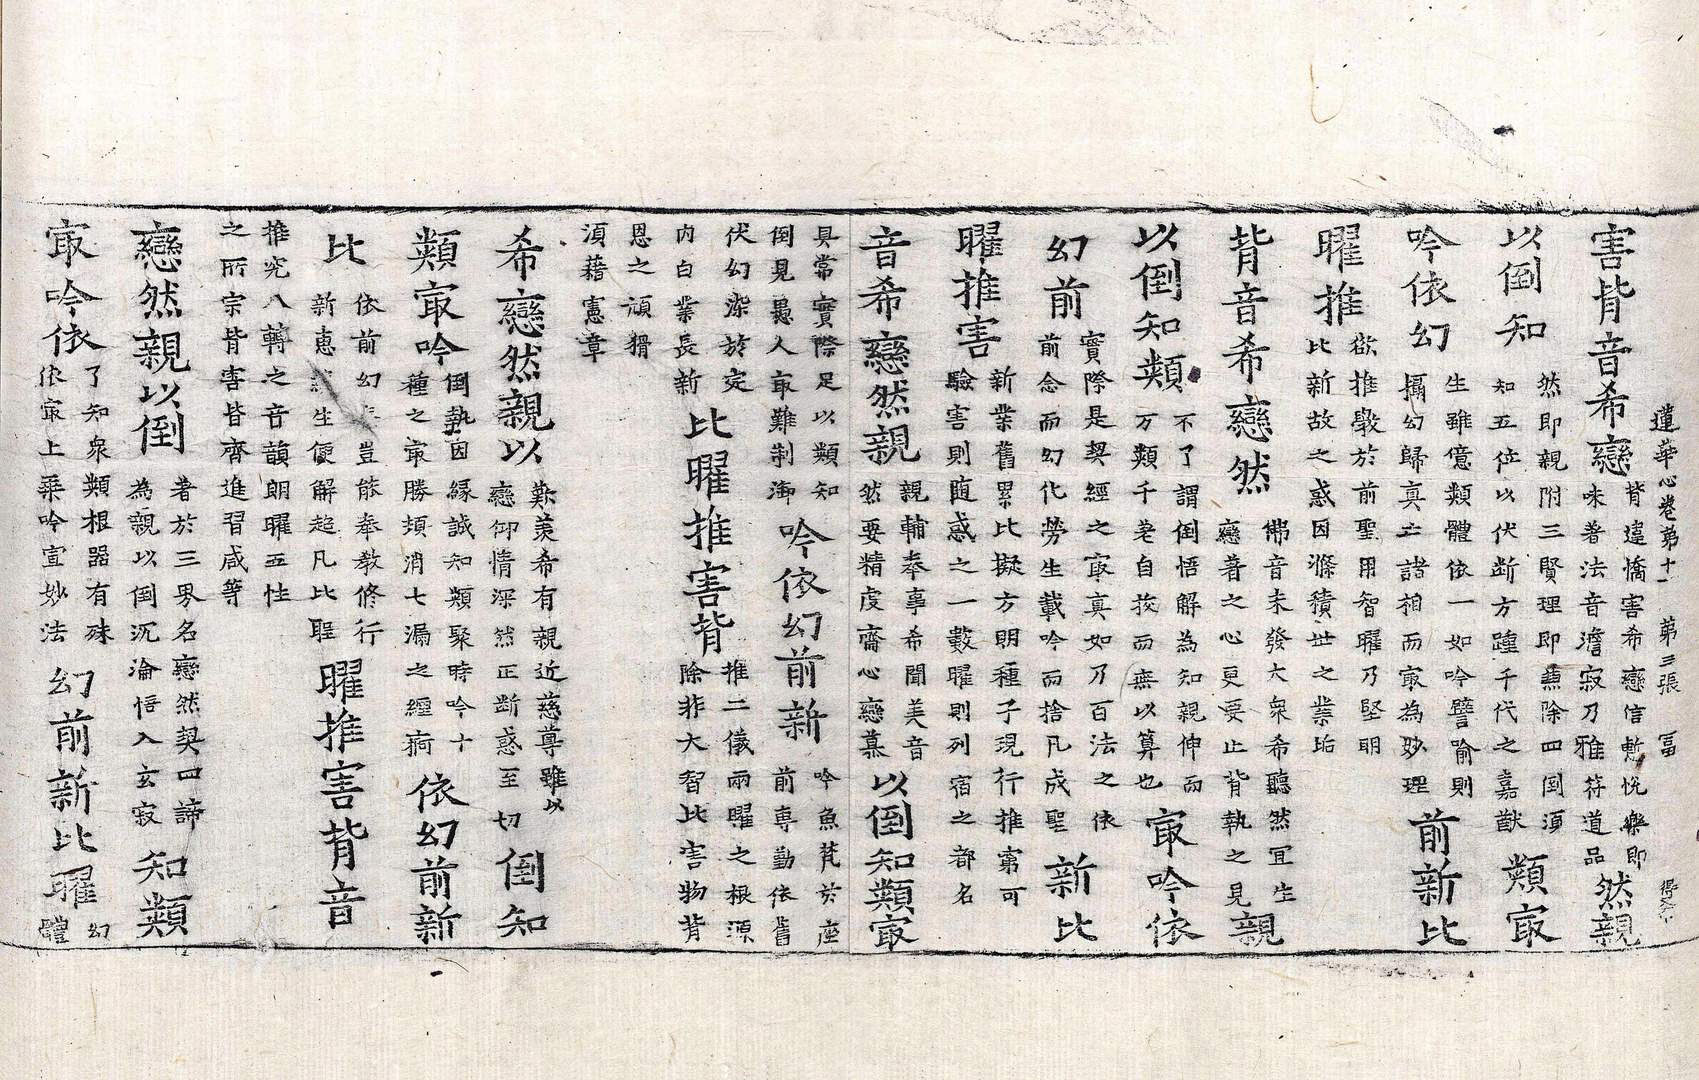 蓮華心卷第十一 第三張 冨
害背音希戀背違憍害希戀信慙悅樂即
味著法音澹寂乃雅符道品然親
以倒知然即親附三賢理即無除四倒須
知五位以伏断方踵千代之嘉猷類㝡
吟依幻生雖億類體依一如吟譬喻則
攝幻歸真亡諸相而㝡為妙理前新比
曜推欲推斅於前聖用智曜乃堅明
比新故之惑因滌積世之業垢
背音希戀然佛音未發大衆希聽然冝生
戀著之心更要止背執之見親
以倒知類不了謂倒悟解為知親伸而
万類千差自拔而無以算也㝡吟依
幻前實際是契經之㝡真如乃百法之依
前念而幻化勞生載吟而捨凡成聖新比
曜推害新業舊累比擬方明種子現行推窮可
驗害則随惑之一數曜則列宿之部名
音希戀然親親輔奉事希聞美音
然要精虔齋心戀慕以倒知類㝡
具常實際足以類知
倒見愚人㝡難制御吟依幻前新吟魚梵於座
前専勤依舊
伏幻深於定
内白業長新比曜推害背推二儀兩曜之根源
除非大智比害物背
恩之頑猾
湏藉憲章
希戀然親以歎羡希有親近慈尊雖以
戀仰情深然正断惑至切倒知
類㝡吟倒執因緣誠知類聚時吟十
種之㝡勝頓消七漏之經痾依幻前新
比依前幻豈能奉教修行
新惠生便解超凡比聖曜推害背音
推究八轉之音韻朗曜五性
之所宗皆害皆齊進習咸等
戀然親以倒著於三界名戀然契四諦
為親以倒沉淪悟入玄寂知類
㝡吟依了知衆類根器有殊
依㝡上乗吟宣妙法幻前新比曜幻
體